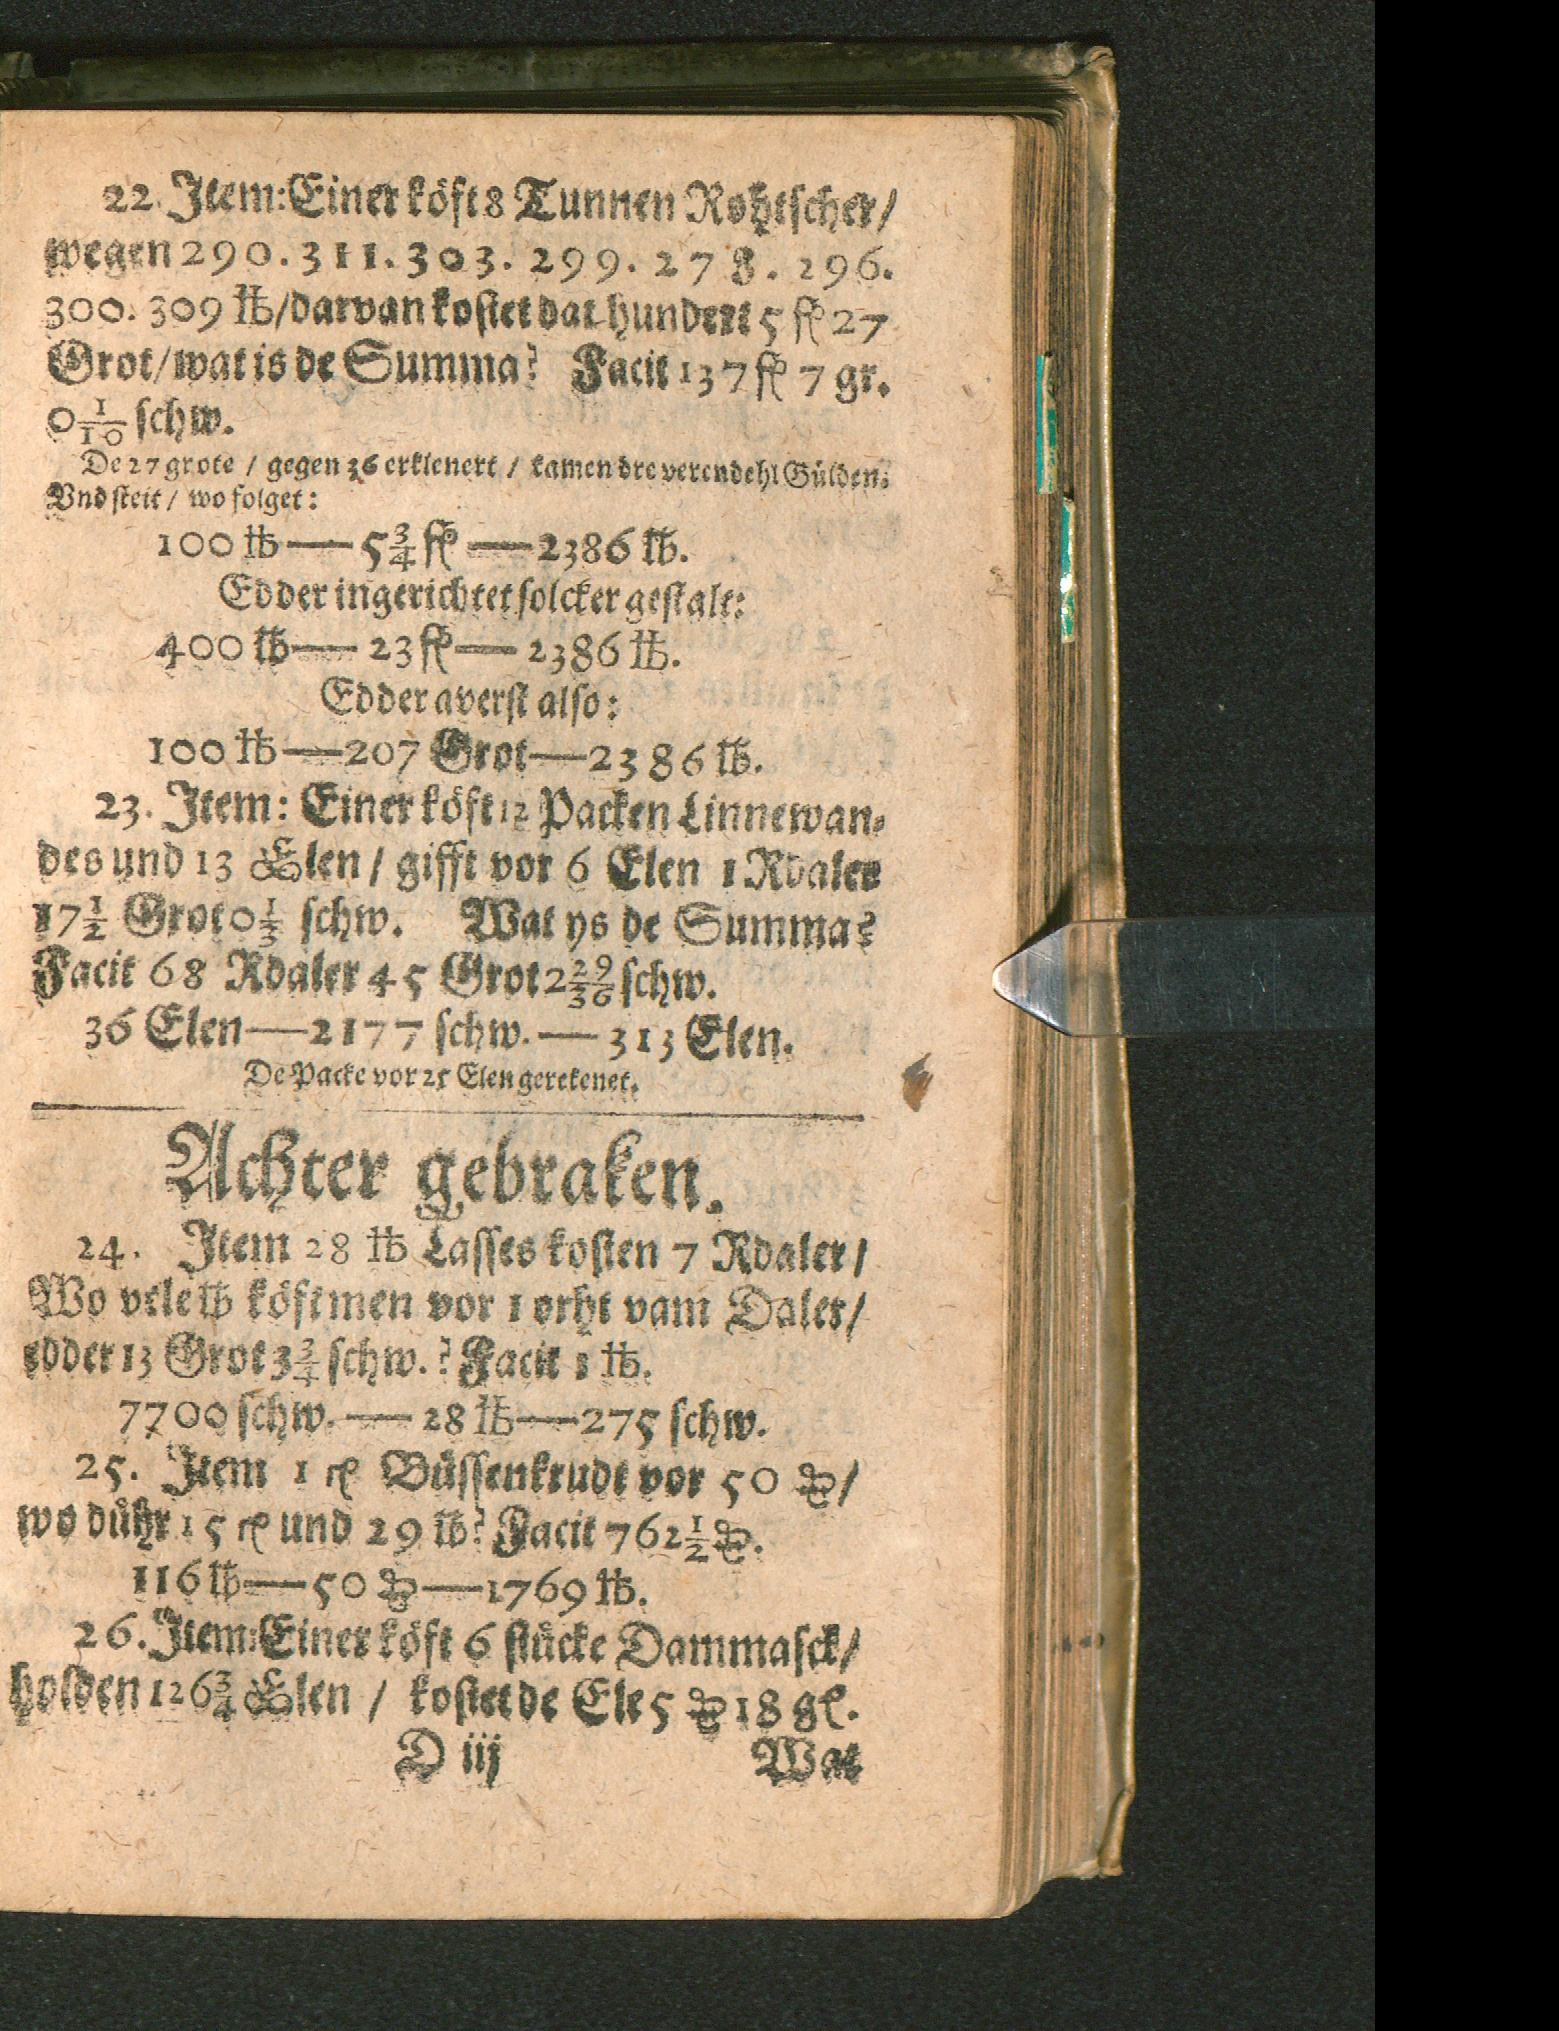 22. Item: Einer köft 8 Tunnen Rohtscher /
wegen 290. 311. 303. 299. 278. 296.
300. 309 ℔ / darvan kostet dat hundert 5 fl 27
Grot / wat is de Summa? Facit 137 fl 7 gr.
0 1/10 schw.
De 27 grote / gegen 36 erklenert / kamen dre verendehl Gülden.
Vnd steit / wo folget:
100 ℔ — 5 3/4 fl — 2386 ℔.
Edder ingerichtet solcker gestalt:
400 ℔ — 23 fl — 2386 ℔.
Edder averst also:
100 ℔ — 207 Grot — 2386 ℔.
23. Item: Einer köft 12 Packen Linnewan-
des und 13 Elen / gifft vor 6 Elen 1 Rdaler
17 1/2 Grot 0 1/3 schw. Wat ys de Summa?
Facit 68 Rdaler 45 Grot 2 29/36 schw.
36 Elen — 2177 schw. — 313 Elen.
De Packe vor 25 Elen gerekenet.
Achter gebraken.
24. Item 28 ℔ Lasses kosten 7 Rdaler /
Wo vele ℔ köft men vor 1 orht vam Daler /
edder 13 Grot 3 3/4 schw.? Facit 1 ℔.
7700 schw. — 28 ℔ — 275 schw.
25. Item 1 Büssenkrudt vor 50 /
wo dühr 15 und 29 ℔? Facit 762 1/2.
116 ℔ — 50 — 1769 ℔.
26. Item: Einer köft 6 stücke Dammasck /
holden 126 3/4 Elen / kostet de Ele 5 18 gl.
D iij Wat